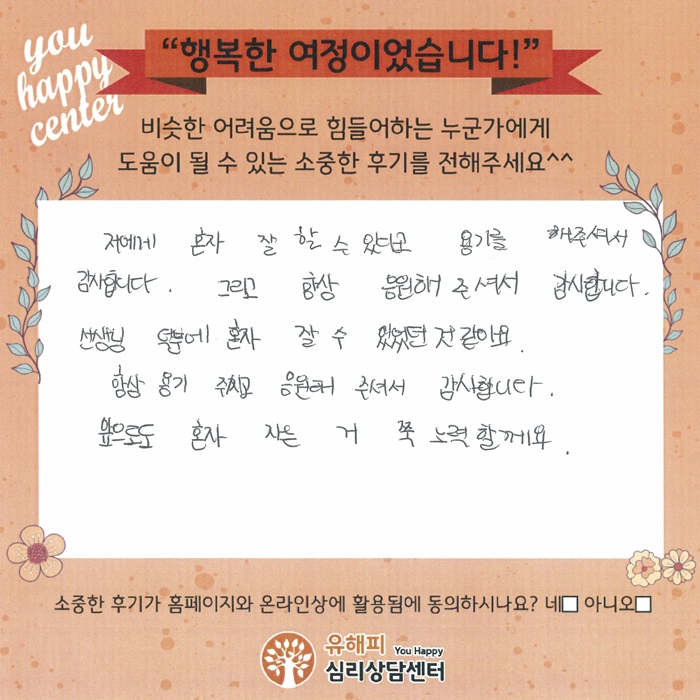 you
happy
center
“행복한 여정이었습니다!”
비슷한 어려움으로 힘들어하는 누군가에게
도움이 될 수 있는 소중한 후기를 전해주세요^^
저에게 혼자 잘 할 수 있다고 용기를 해주셔서
감사합니다. 그리고 항상 응원해 주셔서 감사합니다.
선생님 덕분에 혼자 잘 수 있었던 것 같아요.
항상 용기 주시고 응원해 주셔서 감사합니다.
앞으로도 혼자 자는 거 쭉 노력 할께요.
소중한 후기가 홈페이지와 온라인상에 활용됨에 동의하시나요? 네□ 아니오□
유해피 You Happy
심리상담센터